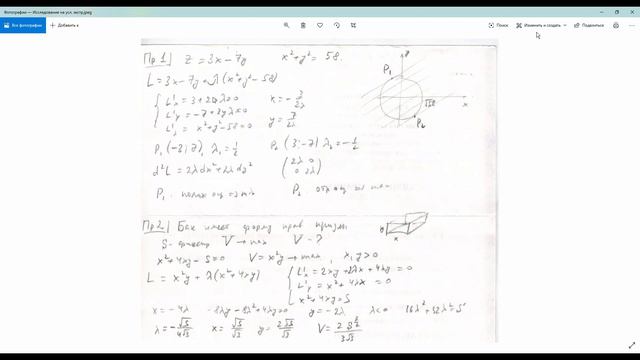 Фотографии — Исследование на усл. экстр.jpeg
Все фотографии
Добавить в
Поиск
Изменить и создать
Поделиться
Пр 1) z = 3x – 7y x²+y² = 58.
L = 3x – 7y + λ(x²+y²–58)
L'x = 3 + 2xλ = 0 x = – 3/2λ
L'y = –7 + 2yλ = 0 y = 7/2λ
L'λ = x²+y²–58 = 0
P₁ P₂ √58 x
P₁(–3; 7), λ₁ = 1/2 P₂(3; –7) λ₂ = –1/2
d²L = 2λdx² + 2λdy² (2λ 0
0 2λ)
P₁ P₂
Пр 2. Бак имеет форму прав призмы
S – V → max V – ?
x² + 4xy – S = 0 V = x²y → max, x, y > 0
L = x²y + λ(x² + 4xy)
L'x = 2xy + 2λx + 4λy = 0
L'y = x² + 4λx = 0
x² + 4xy = S
x = –4λ –8λy – 8λ² + 4λy = 0 y = –2λ λ<0 16λ² + 32λ² = S
λ = – √S/4√3 x = √S/√3 y = V =